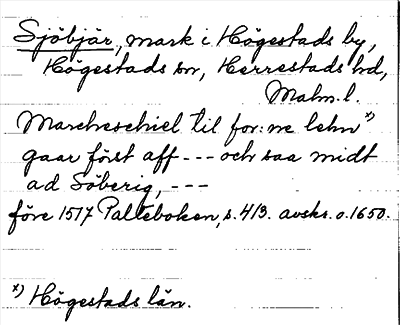 Sjöbjär, mark i Högestads by,
Högestads sn, Herrestads hd,
Malm. l.
Marcheschiel til for:ne lehn x)
gaar först aff --- och saa midt
ad Söberig, ---
före 1517 Palteboken, s. 413. avskr. o. 1650.
x) Högestads län.